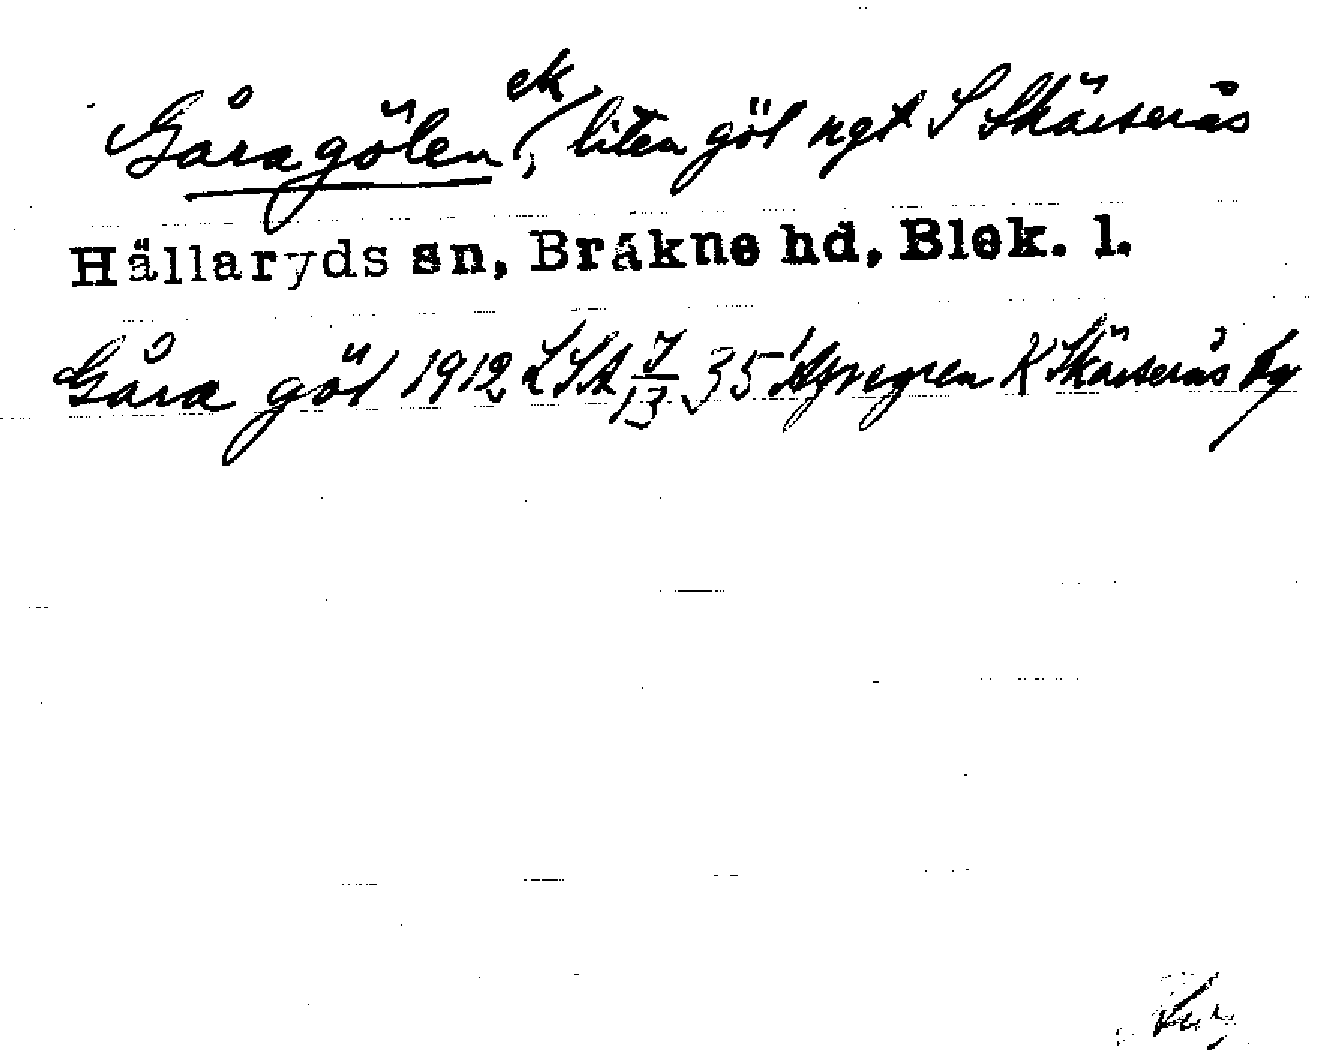 ek
Gåragölen, liten göl ngt S Skärserås
Hällaryds sn, Bräkne hd, Blek. l.
Gåra göl 1912 LSA 7/13 35 K Skärserås by